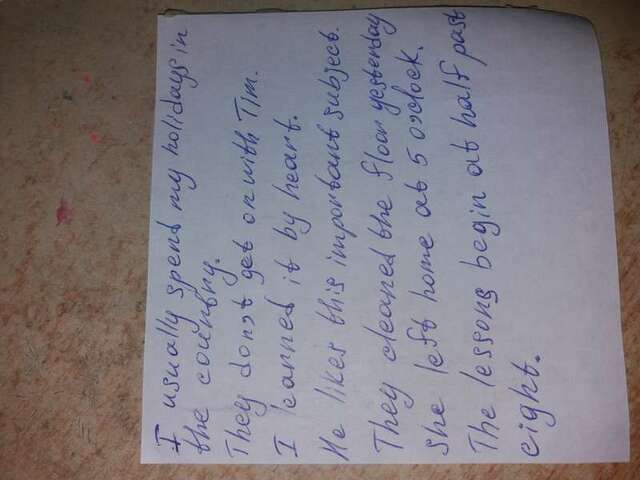 I usually spend my holidays in
the country.
They don't get on with Tim.
I learned it by heart.
He likes this important subject.
They cleaned the floor yesterday
She left home at 5 o'clock.
The lessons begin at half past
eight.